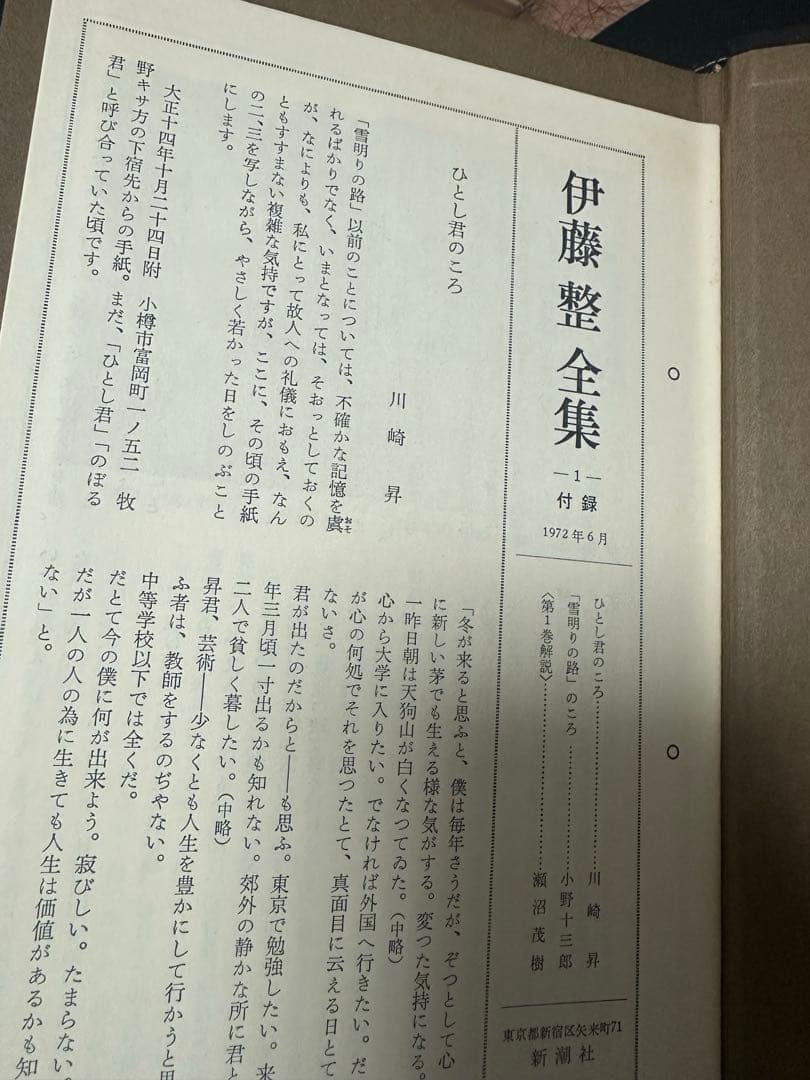 伊藤整全集
―1―
付録
1972年6月
ひとし君のころ……………………川崎昇
「雪明りの路」のころ……………小野十三郎
〈第1巻解説〉………………………瀬沼茂樹
東京都新宿区矢来町71
新潮社
ひとし君のころ
川崎昇
「雪明りの路」以前のことについては、不確かな記憶を虞おそ
れるばかりでなく、いまとなっては、そおっとしておくの
が、なによりも、私にとって故人への礼儀におもえ、なん
ともすすまない複雑な気持ですが、ここに、その頃の手紙
の二、三を写しながら、やさしく若かった日をしのぶこと
にします。
大正十四年十月二十四日附 小樽市富岡町一ノ五二 牧
野キサ方の下宿先からの手紙。まだ、「ひとし君」「のぼる
君」と呼び合っていた頃です。
「冬が来ると思ふと、僕は毎年さうだが、ぞつとして心
に新しい茅でも生える様な気がする。変つた気持になる。
一昨日朝は天狗山が白くなつてゐた。（中略）
心から大学に入りたい。でなければ外国へ行きたい。だ
が心の何処でそれを思つたとて、真面目に云える日とて
ないさ。
君が出たのだからと――も思ふ。東京で勉強したい。来
年三月頃一寸出るかも知れない。郊外の静かな所に君と
二人で貧しく暮したい。（中略）
昇君、芸術――少なくとも人生を豊かにして行かうと思
ふ者は、教師をするのぢやない。
中等学校以下では全くだ。
だとて今の僕に何が出来よう。寂びしい。たまらない。
だが一人の人の為に生きても人生は価値があるかも知
ない」と。